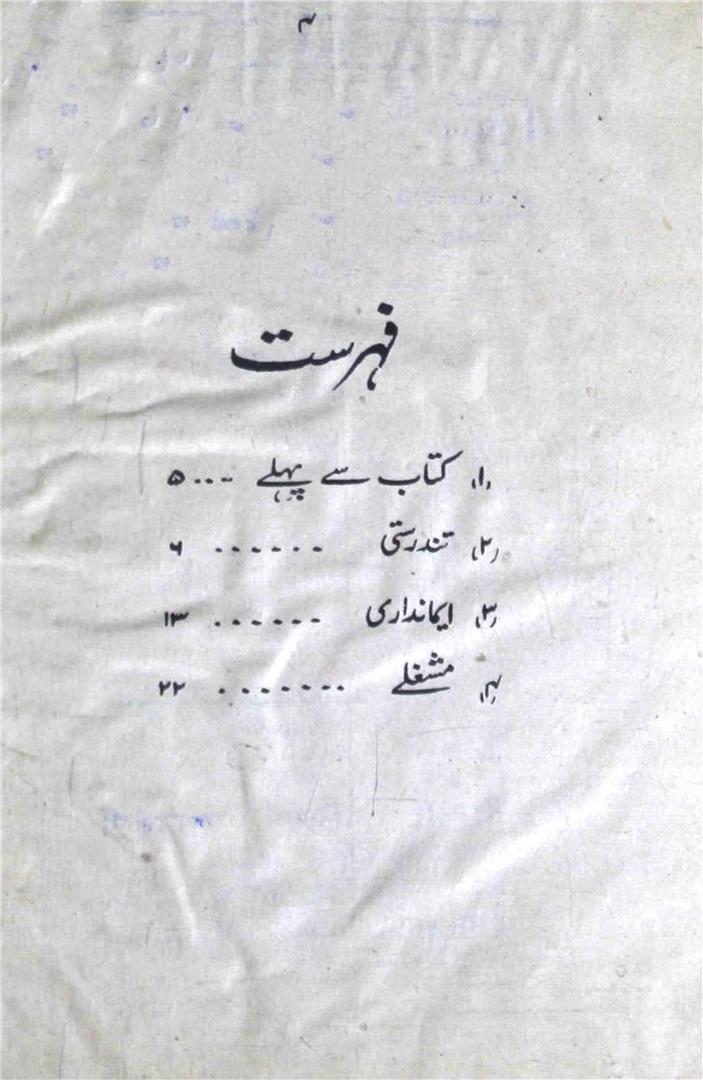 ۴
فہرست
(۱) کتاب سے پہلے ... ۵
(۲) تندرستی ...... ۶
(۳) ایمانداری ...... ۱۳
(۴) مشغلے ....... ۲۲